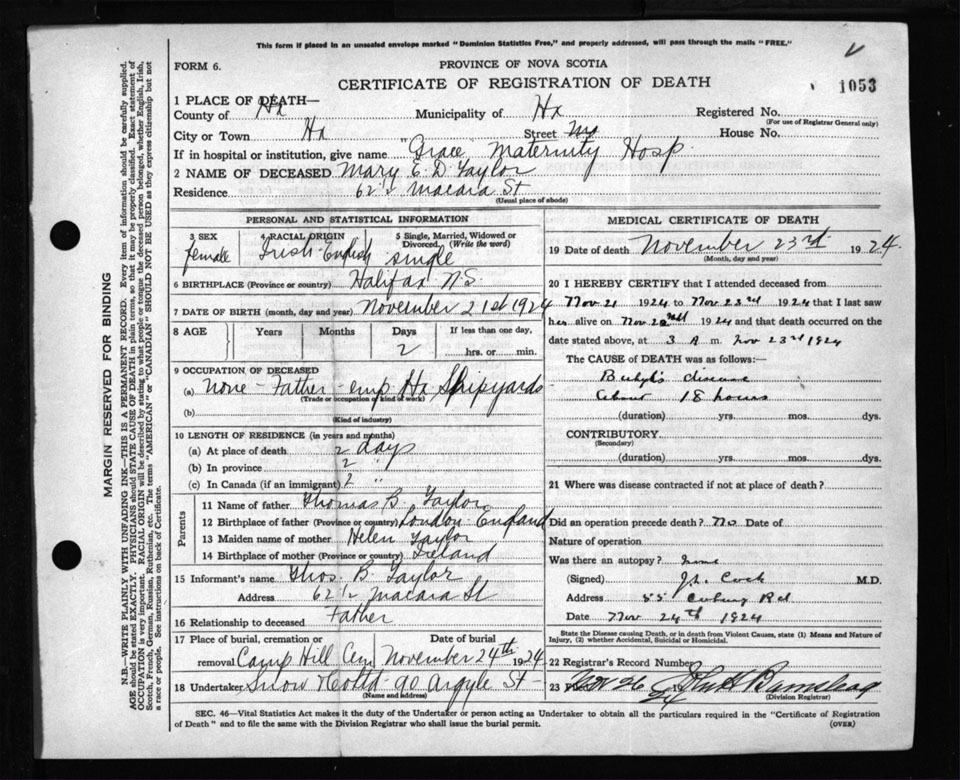 This form if placed in an unsealed envelope marked "Dominion Statistics Free," and properly addressed, will pass through the mails "FREE."
FORM 6.
PROVINCE OF NOVA SCOTIA
CERTIFICATE OF REGISTRATION OF DEATH
1053
1 PLACE OF DEATH—
County of Hx Municipality of Hx Registered No.
(For use of Registrar General only)
City or Town Hx Street House No.
If in hospital or institution, give name "Grace Maternity Hosp.
2 NAME OF DECEASED Mary E. D. Taylor
Residence 62½ Macara St
(Usual place of abode)
PERSONAL AND STATISTICAL INFORMATION
3 SEX female
4 RACIAL ORIGIN Irish-English
5 Single, Married, Widowed or Divorced. (Write the word) single
6 BIRTHPLACE (Province or country) Halifax N.S.
7 DATE OF BIRTH (month, day and year) November 21st 1924
8 AGE Years Months Days If less than one day,
2 hrs. or min.
9 OCCUPATION OF DECEASED
(a) None - Father - emp. Hx Shipyards
(Trade or occupation or kind of work)
(b)
(Kind of industry)
10 LENGTH OF RESIDENCE (in years and months)
(a) At place of death 2 days
(b) In province 2 "
(c) In Canada (if an immigrant) 2 "
Parents
11 Name of father Thomas B. Taylor
12 Birthplace of father (Province or country) London England
13 Maiden name of mother Helen Taylor
14 Birthplace of mother (Province or country) Ireland
15 Informant's name Thos. B Taylor
Address 62½ Macara St
16 Relationship to deceased Father
17 Place of burial, cremation or removal Camp Hill Cem
Date of burial November 24th 1924
18 Undertaker Snow &Co Ltd - 90 Argyle St -
(Name and address)
MEDICAL CERTIFICATE OF DEATH
19 Date of death November 23rd 1924.
(Month, day and year)
20 I HEREBY CERTIFY that I attended deceased from
Nov 21 1924 to Nov 23rd 1924 that I last saw
her alive on Nov 22nd 1924 and that death occurred on the
date stated above, at 3 A m. Nov 23rd 1924
The CAUSE of DEATH was as follows:
Buhl's disease
about 18 hours
(duration) yrs. mos. dys.
CONTRIBUTORY
(Secondary)
(duration) yrs. mos. dys.
21 Where was disease contracted if not at place of death?
Did an operation precede death? No Date of
Nature of operation
Was there an autopsy? none
(Signed) Cock M.D.
Address 55 Coburg Rd
Date Nov 24th 1924
State the Disease causing Death, or in death from Violent Causes, state (1) Means and Nature of Injury, (2) whether Accidental, Suicidal or Homicidal.
22 Registrar's Record Number
23 Filed Nov 26 24
(Division Registrar)
SEC. 46—Vital Statistics Act makes it the duty of the Undertaker or person acting as Undertaker to obtain all the particulars required in the "Certificate of Registration
of Death" and to file the same with the Division Registrar who shall issue the burial permit.
(OVER)
MARGIN RESERVED FOR BINDING
N.B.—WRITE PLAINLY WITH UNFADING INK—THIS IS A PERMANENT RECORD. Every item of information should be carefully supplied.
AGE should be stated EXACTLY. PHYSICIANS should STATE CAUSE OF DEATH in plain terms, so that it may be properly classified. Exact statement of
OCCUPATION is very important. RACIAL ORIGIN will be described by stating to what people or tongue the deceased person belonged, whether English, Irish,
Scotch, French, German, Russian, Ruthenian, etc. The terms "AMERICAN" or "CANADIAN" SHOULD NOT BE USED as they express citizenship but not
a race or people. See instructions on back of Certificate.